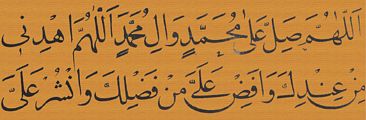 اَللّٰهُمَّ صَلِّ عَلٰى مُحَمَّدٍ وَاٰلِ مُحَمَّدٍ اَللّٰهُمَّ اهْدِنِى
مِنْ عِنْدِكَ وَاَفِضْ عَلَىَّ مِنْ فَضْلِكَ وَانْشُرْ عَلَىَّ